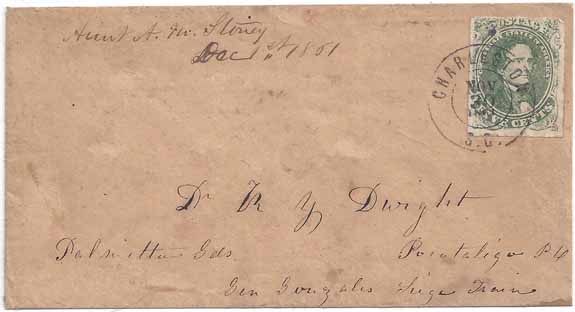 Aunt A. M. Stoney
Dec 1st 1861
POSTAGE
CHARLESTON
NOV
S.C.
CENTS
Dr R Y Dwight
Palmetto Gds. Pocotaligo P O
Gen Gonzales Siege Train